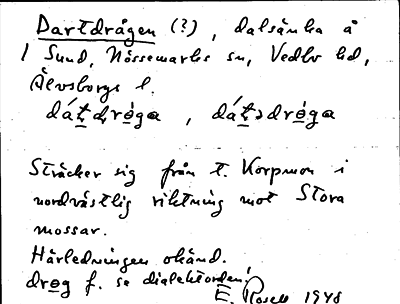 Dartdrågen (?), dalsänka å
1 Sund, Nössemarks sn, Vedbo hd,
Älvsborgs l.
dát̲drǫ́ga, dát̲ədrǫga
Sträcker sig från t. Korpmon i
nordvästlig riktning mot Stora
mossar.
Härledningen okänd.
drǫg f. se dialektorden!
E. Rosell 1948